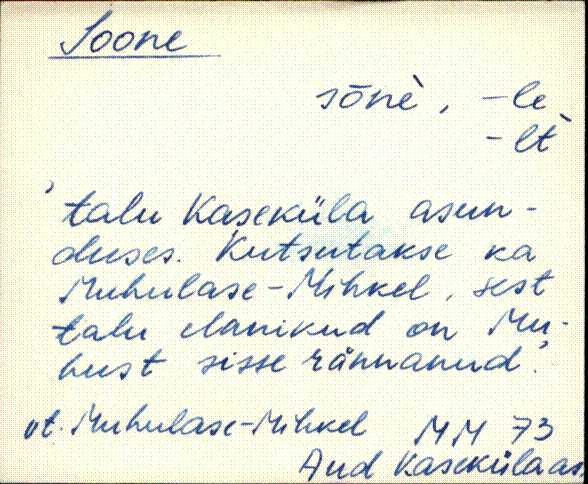 Soone
sōnè, -le
-lt̀
'talu Kaseküla asun-
duses. Kutsutakse ka
Muhulase-Mihkel, sest
talu elanikud on Mu-
hust sisse rännanud.'
vt. Muhulase-Mihkel MM 73
And Kasekülaas